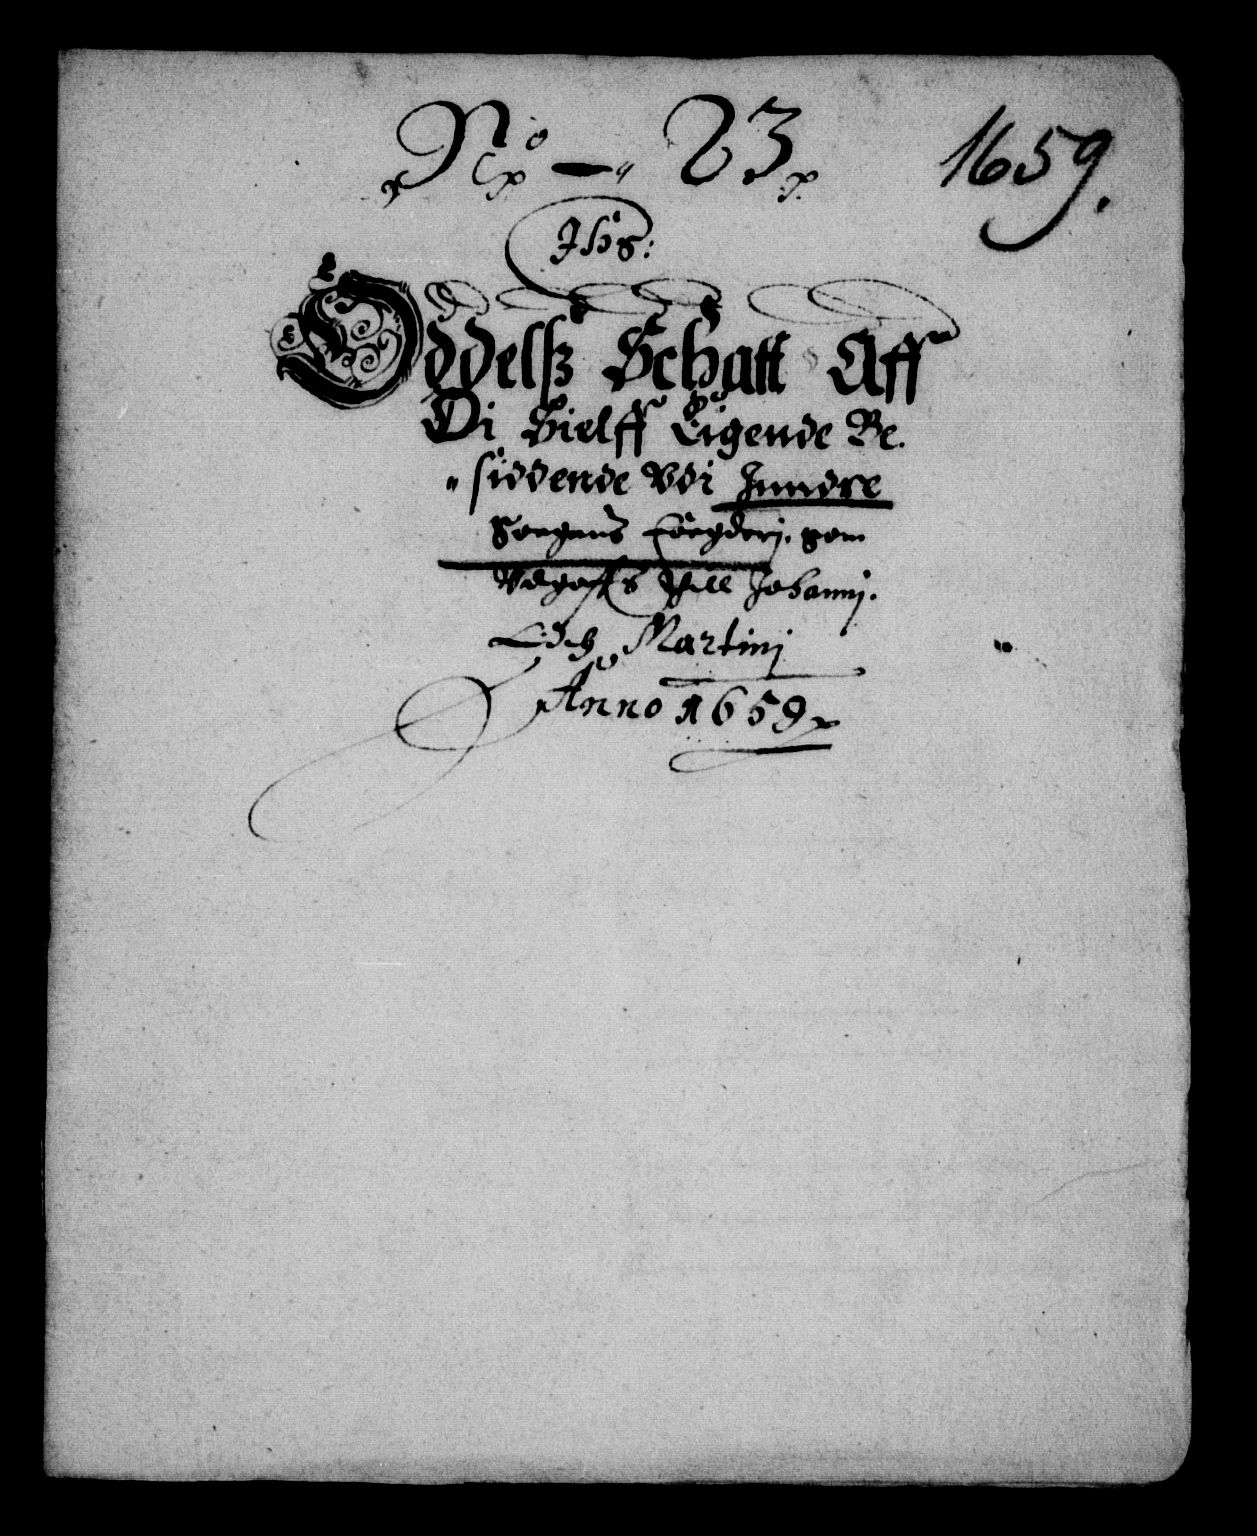 No — 23. 1659.
Jhs:
Oddelsz Schatt Aff
Di Sielff Eigende Be-
siddende Vdi Inndre
Soegens Foegderj. som
Vdgaffs Till Johannj.
och Martinj
Anno 1659